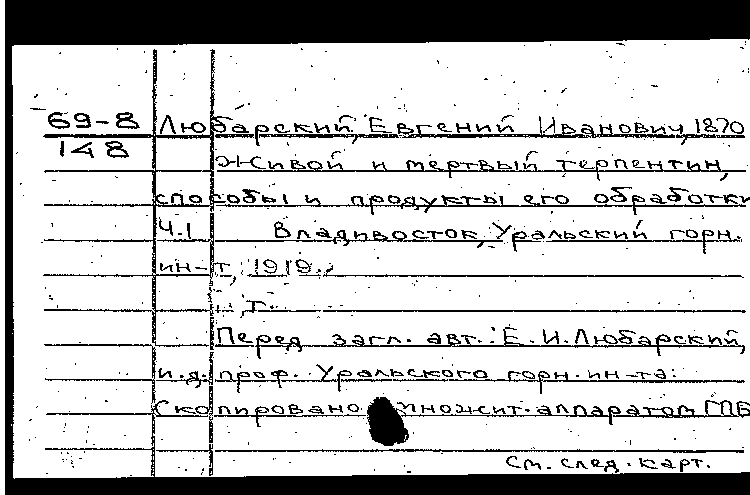 69-8 Любарский, Евгений Иванович, 1870
148 Живой и мертвый терпентин,
способы и продукты его обработки
Ч.1 Владивосток, Уральский горн.
ин-т, 1919.
т.
Перед загл. авт.: Е.И.Любарский,
и.д. проф. Уральского горн. ин-та.
Скопировано множит. аппаратом ГПБ
См. след. карт.